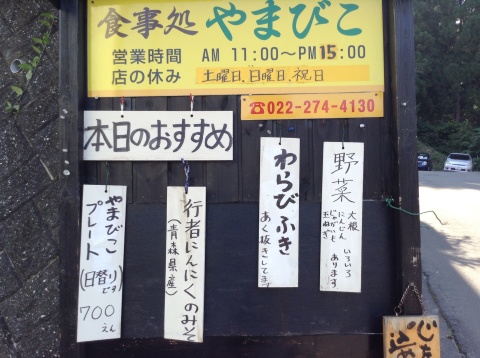 食事処 やまびこ
営業時間 AM 11:00～PM15:00
店の休み 土曜日,日曜日,祝日
☎022-274-4130
本日のおすすめ
野菜
大根 いろいろ
にんじん あります
じゃがいも
玉ねぎ
わらびふき
あく抜きしてます
行者にんにくのみそ
(青森県産)
やまびこ
プレート
(日替り
です)
700
えん